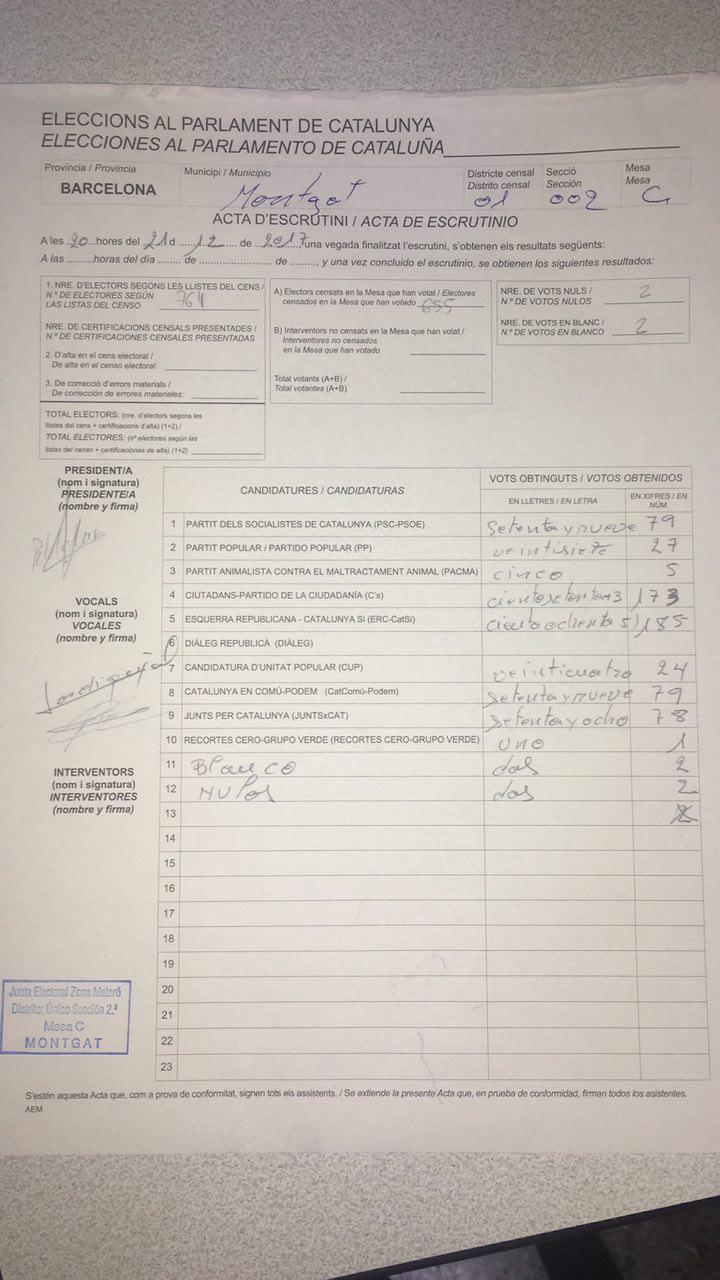 ELECCIONS AL PARLAMENT DE CATALUNYA
ELECCIONES AL PARLAMENTO DE CATALUÑA
Província / Provincia
BARCELONA
Municipi / Municipio
Montgat
Districte censal
Distrito censal
01
Secció
Sección
002
Mesa
Mesa
C
ACTA D'ESCRUTINI / ACTA DE ESCRUTINIO
A les 20 hores del 21 d 12 de 2017 una vegada finalitzat l'escrutini, s'obtenen els resultats següents:
A las .........horas del día ........ de ...................... de ........, y una vez concluido el escrutinio, se obtienen los siguientes resultados:
1. NRE. D'ELECTORS SEGONS LES LLISTES DEL CENS /
N.º DE ELECTORES SEGÚN
LAS LISTAS DEL CENSO 764
NRE. DE CERTIFICACIONS CENSALS PRESENTADES /
N.º DE CERTIFICACIONES CENSALES PRESENTADAS
2. D'alta en el cens electoral /
De alta en el censo electoral:
3. De correcció d'errors materials /
De corrección de errores materiales:
TOTAL ELECTORS: (nre. d'electors segons les
llistes del cens + certificacions d'alta) (1+2) /
TOTAL ELECTORES: (nº electores según las
listas del censo + certificaciones de alta) (1+2)
A) Electors censats en la Mesa que han votat / Electores
censados en la Mesa que han votado 655
B) Interventors no censats en la Mesa que han votat /
Interventores no censados
en la Mesa que han votado
Total votants (A+B) /
Total votantes (A+B)
NRE. DE VOTS NULS /
N.º DE VOTOS NULOS 2
NRE. DE VOTS EN BLANC /
N.º DE VOTOS EN BLANCO 2
PRESIDENT/A
(nom i signatura)
PRESIDENTE/A
(nombre y firma)
VOCALS
(nom i signatura)
VOCALES
(nombre y firma)
INTERVENTORS
(nom i signatura)
INTERVENTORES
(nombre y firma)
CANDIDATURES / CANDIDATURAS
VOTS OBTINGUTS / VOTOS OBTENIDOS
EN LLETRES / EN LETRA
EN XIFRES / EN NÚM.
1 PARTIT DELS SOCIALISTES DE CATALUNYA (PSC-PSOE) setenta y nueve 79
2 PARTIT POPULAR / PARTIDO POPULAR (PP) veintisiete 27
3 PARTIT ANIMALISTA CONTRA EL MALTRACTAMENT ANIMAL (PACMA) cinco 5
4 CIUTADANS-PARTIDO DE LA CIUDADANÍA (C's) 173
5 ESQUERRA REPUBLICANA - CATALUNYA SÍ (ERC-CatSí) 185
6 DIÀLEG REPUBLICÀ (DIÀLEG)
7 CANDIDATURA D'UNITAT POPULAR (CUP) veinticuatro 24
8 CATALUNYA EN COMÚ-PODEM (CatComú-Podem) setenta y nueve 79
9 JUNTS PER CATALUNYA (JUNTSxCAT) setenta y ocho 78
10 RECORTES CERO-GRUPO VERDE (RECORTES CERO-GRUPO VERDE) uno 1
11 Blanco dos 2
12 Nulos dos 2
13
14
15
16
17
18
19
20
21
22
23
Junta Electoral Zona Mataró
Distrito: Único Sección 2.ª
Mesa C
MONTGAT
S'estén aquesta Acta que, com a prova de conformitat, signen tots els assistents. / Se extiende la presente Acta que, en prueba de conformidad, firman todos los asistentes.
AEM